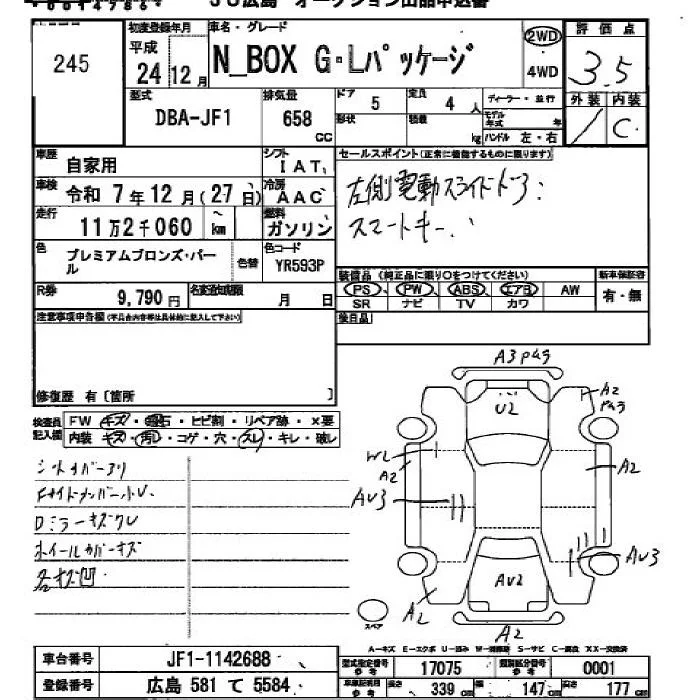 JU広島 オークション出品申込書
245
初度登録年月
平成
24 12月
車名・グレード
N_BOX G・Lパッケージ
2WD
4WD
評価点
3.5
型式
DBA-JF1
排気量
658
cc
ドア 5
定員 4 人
形状
積載 kg
ディーラー・並行
モデル年式 年
ハンドル 左・右
外装 内装
/ C
車歴 自家用
シフト IAT
セールスポイント(正常に機能するものに限ります)
車検 令和 7年12月(27日)
冷房 AAC
左側電動スライドドア
走行 11万2千060 km
燃料 ガソリン
スマートキー
色 プレミアムブロンズ・パール
色替
色コード
YR593P
装備品(純正品に限り○をつけてください)
新車保証書
PS PW ABS エアB AW
有・無
R券 9,790円
名変通知期限 月 日
SR ナビ TV カワ
注意事項申告欄(不具合内容等は具体的に記入して下さい)
後日品
修復歴 有〔箇所 〕
検査員記入欄
FW キズ・飛石・ヒビ割・リペア跡・×要
内装 キズ・汚レ・コゲ・穴・スレ・キレ・破レ
シートカバーアリ
Fサイドメンバー小U
Dミラーキズ
ホイールカバーキズ
各キズ凹
A3
U2
A2
WL
A2
A2
AU3
AU3
AU2
A2
A2
スペア
A-キズ E-エクボ U-凹み W-補修跡 S-サビ C-腐食 XX-交換済
車台番号 JF1-1142688
型式指定番号 17075
類別区分番号 0001
登録番号 広島 581 て 5584
車庫証明項目 長さ 339cm 幅 147cm 高さ 177cm